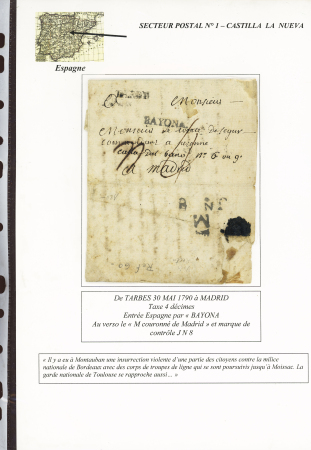 SECTEUR POSTAL N° 1 – CASTILLA LA NUEVA
Espagne
Monsieur
BAYONA
Monsieur
a madrid
M
De TARBES 30 MAI 1790 à MADRID
Taxe 4 décimes
Entrée Espagne par « BAYONA
Au verso le « M couronné de Madrid » et marque de
contrôle J N 8
« Il y a eu à Montauban une insurrection violente d'une partie des citoyens contre la milice
nationale de Bordeaux avec des corps de troupes de ligne qui se sont poursuivis jusqu'à Moissac. La
garde nationale de Toulouse se rapproche aussi… »